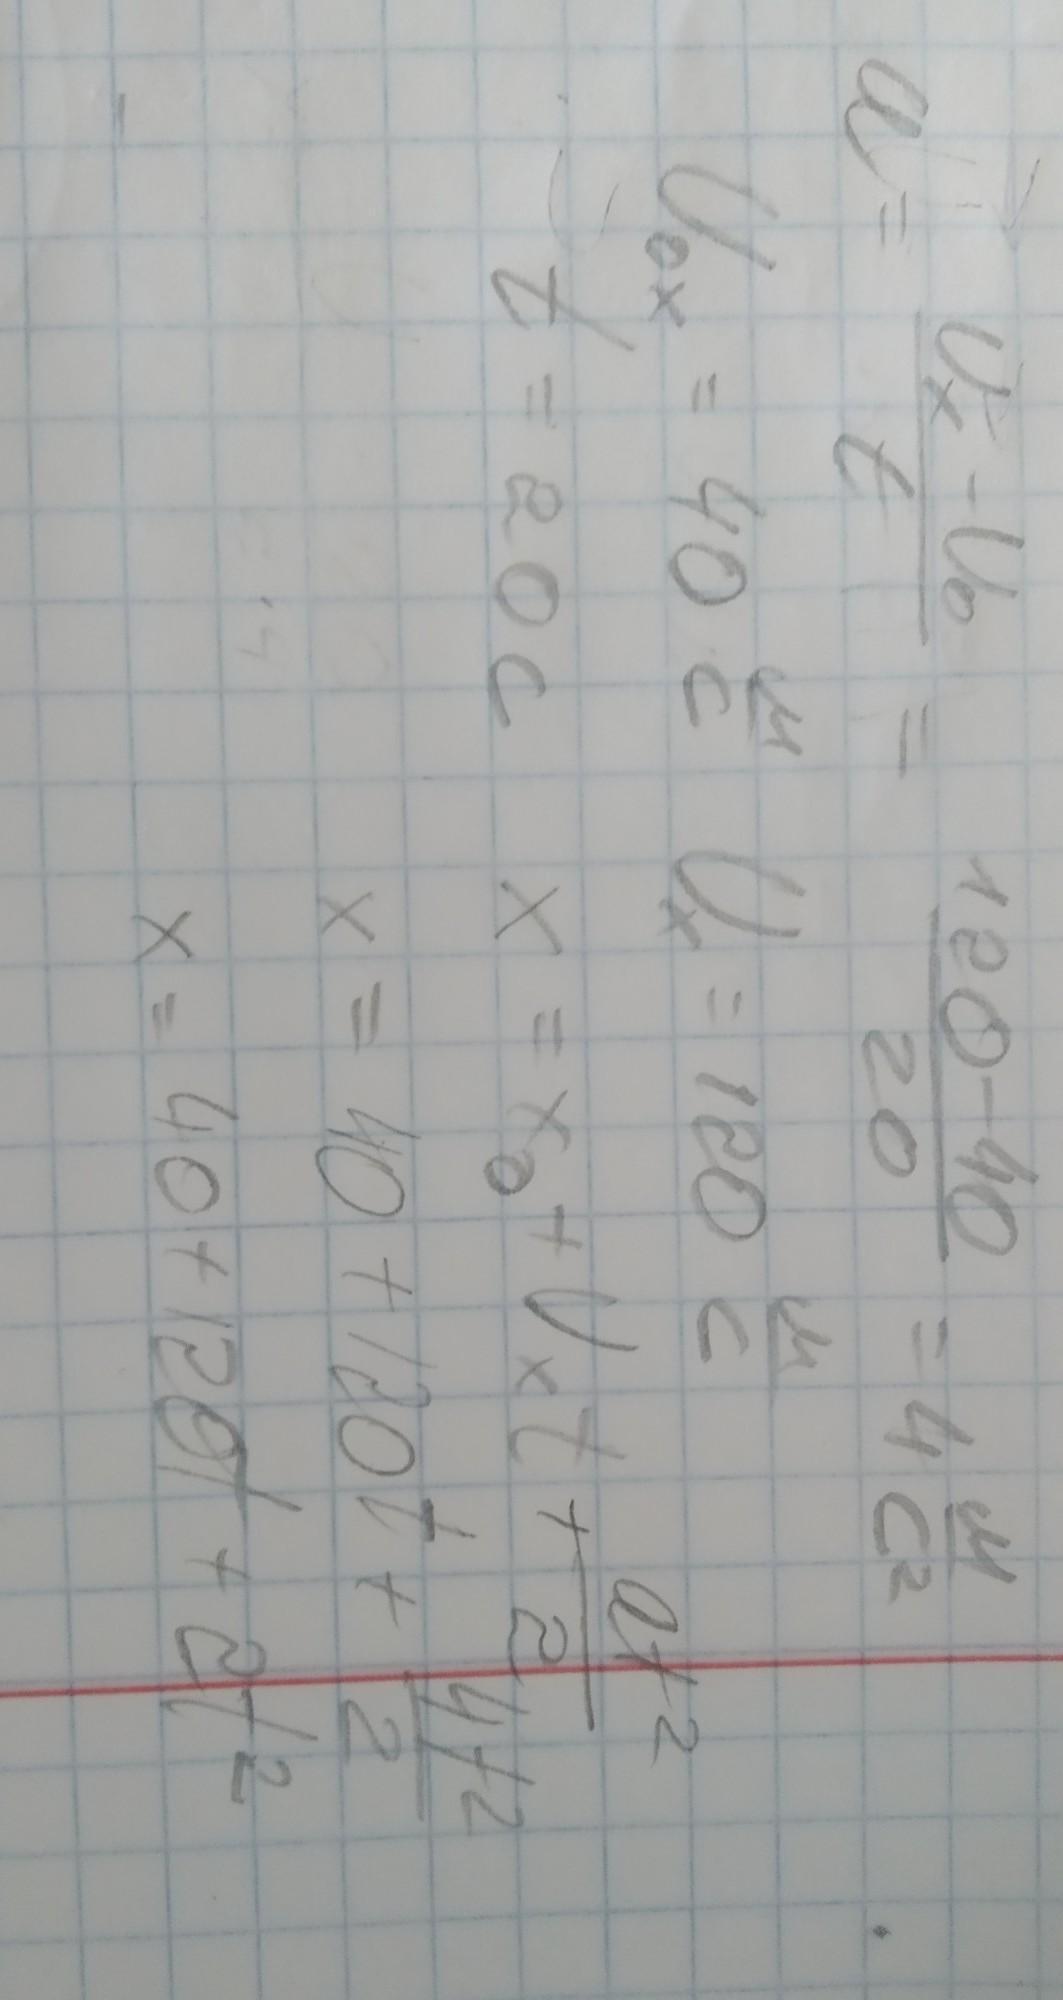 a = (Vx - V0)/t = (120-40)/20 = 4 м/с²
V0x = 40 м/с Vx = 120 м/с
t = 20 с x = x0 + Vxt + at²/2
x = 40 + 120t + 4t²/2
x = 40 + 120t + 2t²